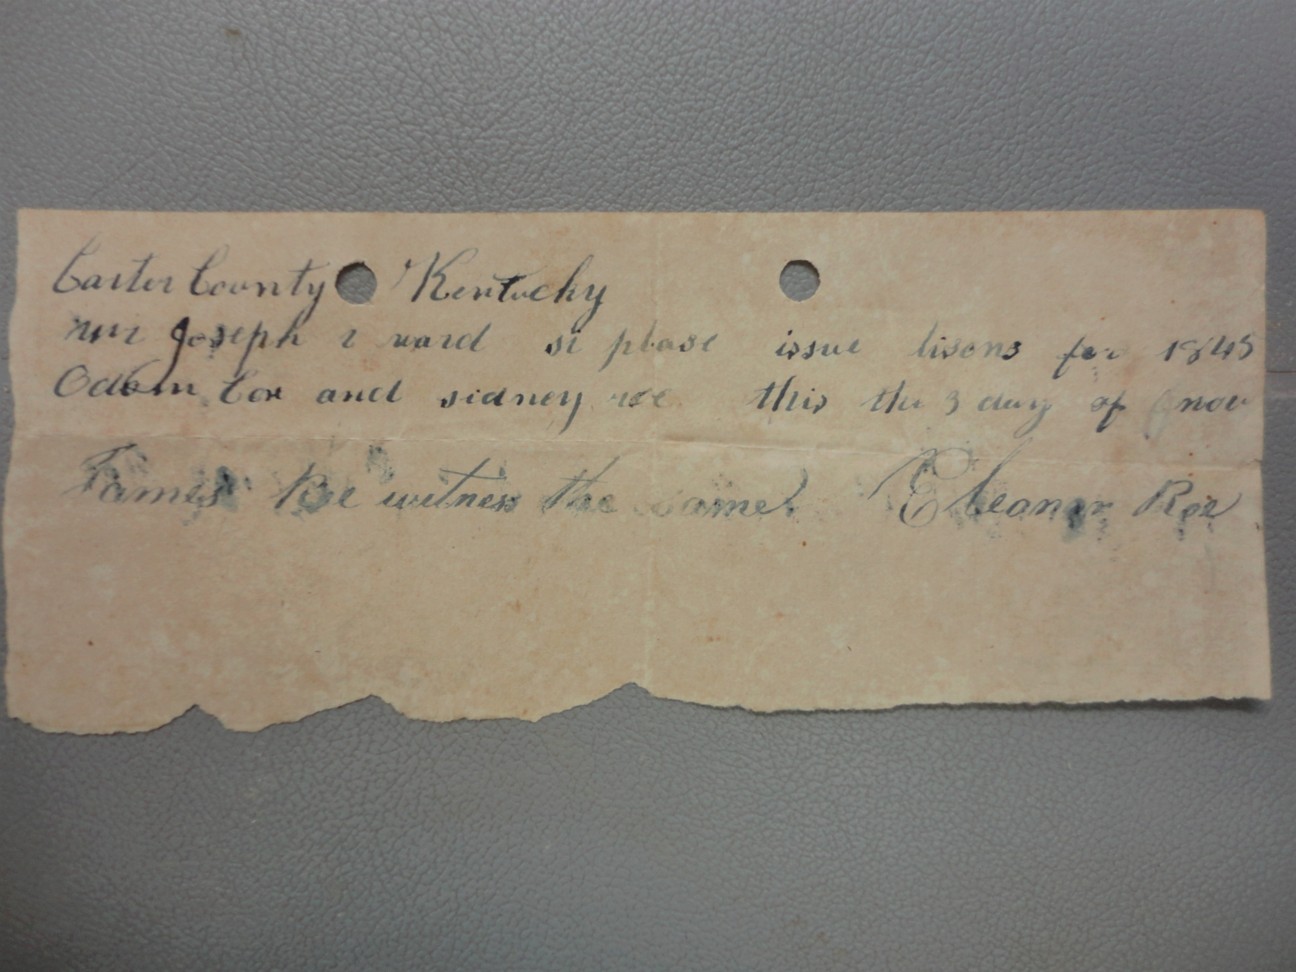 Carter County Kentucky
mr Joseph r ward sir please issue lisons for 1845
Odam Cox and sidney roe this the 3 day of nov
James Roe witness the same Eleanor Roe